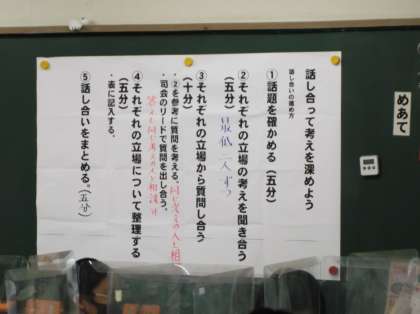 めあて
話し合って考えを深めよう
話し合いの進め方
①話題を確かめる（五分）
②それぞれの立場の考えを聞き合う
（五分）
最低一人ずつ
③それぞれの立場から質問し合う
（十分）
・②を参考に質問を考える。同じ考えの人と相
・司会のリードで質問を出し合う。
答えも同じ考えの人と相談
④それぞれの立場について整理する
（五分）
・表に記入する。
⑤話し合いをまとめる。（五分）